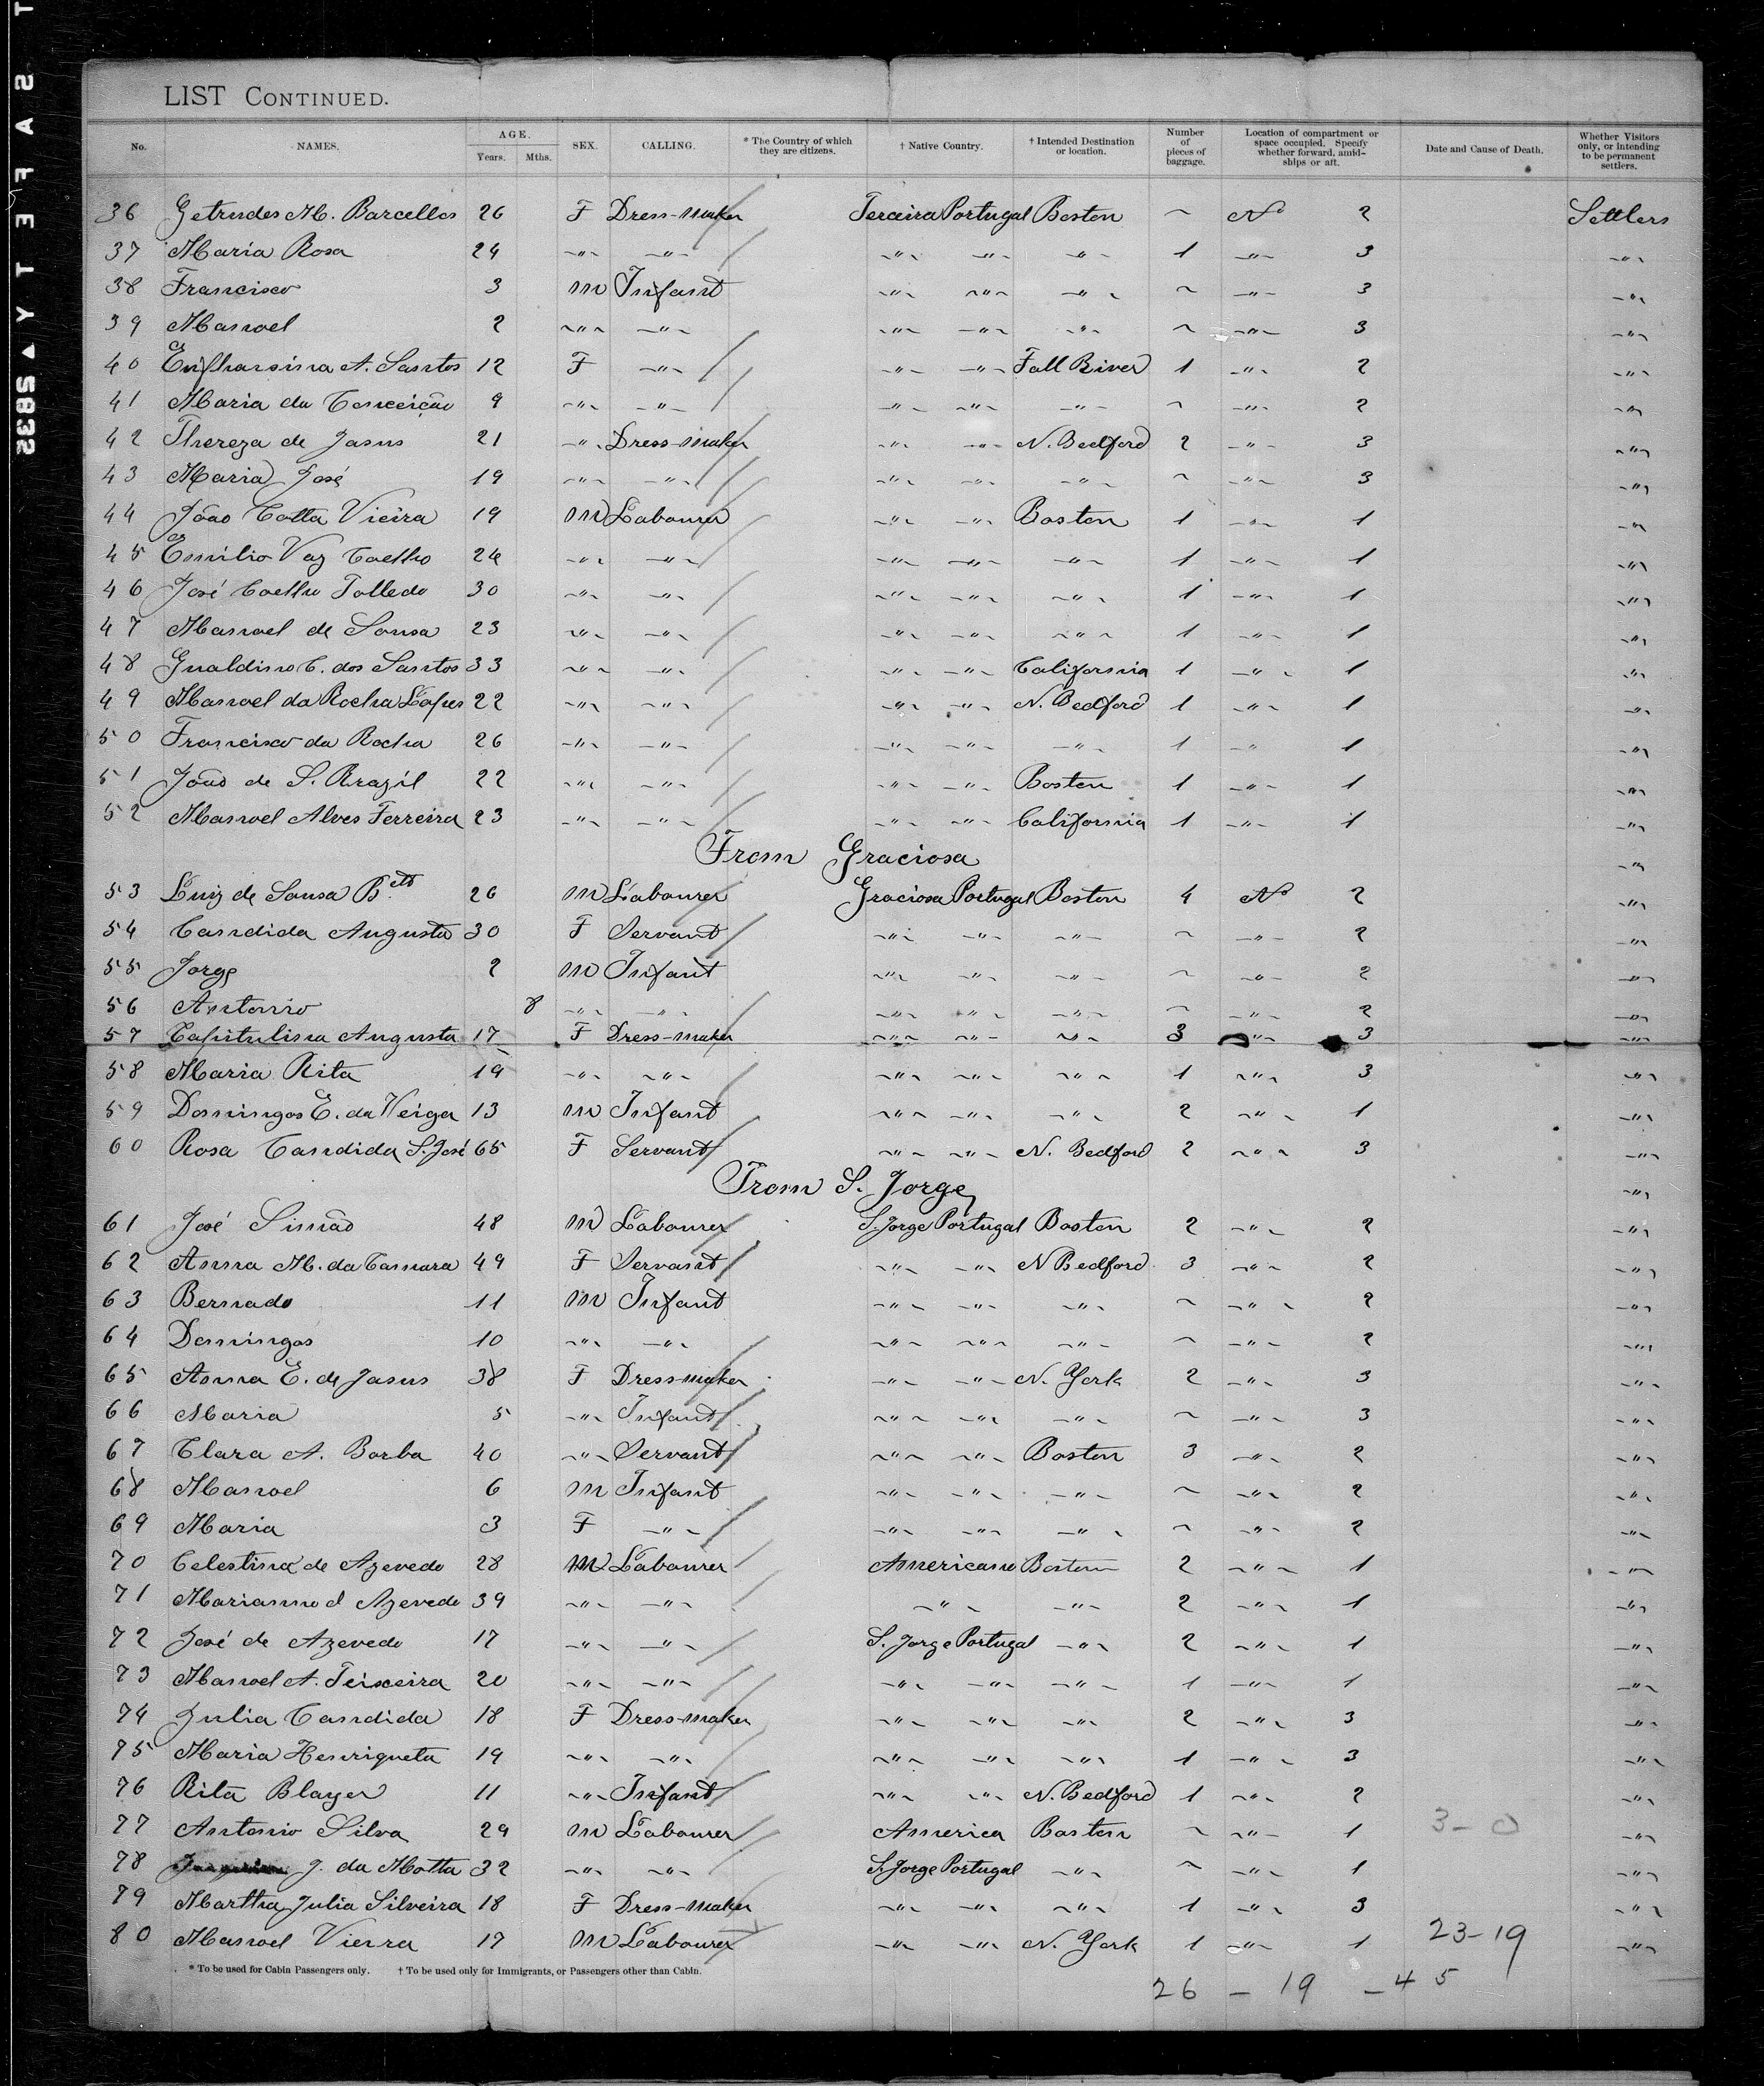 SAFETY ▲ S832
LIST CONTINUED.
No. NAMES. AGE. Years. Mths. SEX. CALLING. * The Country of which they are citizens. † Native Country. † Intended Destination or location. Number of pieces of baggage. Location of compartment or space occupied. Specify whether forward, amidships or aft. Date and Cause of Death. Whether Visitors only, or intending to be permanent settlers.
36 Getrudes M. Barcellos 26 F Dress-maker Terceira Portugal Boston ~ No 2 Settlers
37 Maria Rosa 24 -"- -"- -"- -"- -"- 1 -"- 3 -"-
38 Francisco 3 M Infant -"- -"- -"- ~ -"- 3 -"-
39 Manoel 2 -"- -"- -"- -"- -"- ~ -"- 3 -"-
40 Eufharsina A. Santos 12 F -"- -"- -"- Fall River 1 -"- 2 -"-
41 Maria da Conceição 9 -"- -"- -"- -"- -"- ~ -"- 2 -"-
42 Thereza de Jasus 21 -"- Dress-maker -"- -"- N. Bedford 2 -"- 3 -"-
43 Maria José 19 -"- -"- -"- -"- -"- ~ -"- 3 -"-
44 João Cotta Vieira 19 M Labourer -"- -"- Boston 1 -"- 1 -"-
45 Emilio Vaz Coelho 24 -"- -"- -"- -"- -"- 1 -"- 1 -"-
46 José Coelho Tolledo 30 -"- -"- -"- -"- -"- 1 -"- 1 -"-
47 Manoel de Sousa 23 -"- -"- -"- -"- -"- 1 -"- 1 -"-
48 Gualdino C. dos Santos 33 -"- -"- -"- -"- California 1 -"- 1 -"-
49 Manoel da Rocha Lopes 22 -"- -"- -"- -"- N. Bedford 1 -"- 1 -"-
50 Francisco da Rocha 26 -"- -"- -"- -"- -"- 1 -"- 1 -"-
51 João de S. Brazil 22 -"- -"- -"- -"- Boston 1 -"- 1 -"-
52 Manoel Alves Ferreira 23 -"- -"- -"- -"- California 1 -"- 1 -"-
From Graciosa -"-
53 Luiz de Sousa 26 M Labourer Graciosa Portugal Boston 4 No 2 -"-
54 Candida Augusta 30 F Servant -"- -"- -"- ~ -"- 2 -"-
55 Jorge 2 M Infant -"- -"- -"- ~ -"- 2 -"-
56 Antonio 8 -"- -"- -"- -"- -"- ~ -"- 2 -"-
57 Capitulina Augusta 17 F Dress-maker -"- -"- -"- 3 -"- 3 -"-
58 Maria Rita 19 -"- -"- -"- -"- -"- 1 -"- 3 -"-
59 Domingos E. da Veiga 13 M Infant -"- -"- -"- 2 -"- 1 -"-
60 Rosa Candida S. José 65 F Servant -"- -"- N. Bedford 2 -"- 3 -"-
From S. Jorge -"-
61 José Simão 48 M Labourer S. Jorge Portugal Boston 2 -"- 2 -"-
62 Anna M. da Camara 49 F Servant -"- -"- N Bedford 3 -"- 2 -"-
63 Bernado 11 M Infant -"- -"- -"- ~ -"- 2 -"-
64 Domingos 10 -"- -"- -"- -"- -"- ~ -"- 2 -"-
65 Anna E. de Jasus 38 F Dress-maker -"- -"- N. York 2 -"- 3 -"-
66 Maria 5 -"- Infant -"- -"- -"- ~ -"- 3 -"-
67 Clara A. Borba 40 -"- Servant -"- -"- Boston 3 -"- 2 -"-
68 Manoel 6 M Infant -"- -"- -"- ~ -"- 2 -"-
69 Maria 3 F -"- -"- -"- -"- ~ -"- 2 -"-
70 Celestina de Azevedo 28 M Labourer Americano Boston 2 -"- 1 -"-
71 Marianno d Azevedo 39 -"- -"- -"- -"- 2 -"- 1 -"-
72 José de Azevedo 17 -"- -"- S. Jorge Portugal -"- 2 -"- 1 -"-
73 Manoel A. Teixeira 20 -"- -"- -"- -"- -"- 1 -"- 1 -"-
74 Julia Candida 18 F Dress-maker -"- -"- -"- 2 -"- 3 -"-
75 Maria Henriqueta 19 -"- -"- -"- -"- -"- 1 -"- 3 -"-
76 Rita Blayer 11 -"- Infant -"- -"- N. Bedford 1 -"- 2 -"-
77 Antonio Silva 29 M Labourer America Boston ~ -"- 1 3-0 -"-
78 J. da Motta 32 -"- -"- S. Jorge Portugal -"- ~ -"- 1 -"-
79 Martha Julia Silveira 18 F Dress-maker -"- -"- -"- 1 -"- 3 -"-
80 Manoel Vierra 17 M Labourer -"- -"- N. York 1 -"- 1 23-19 -"-
* To be used for Cabin Passengers only. † To be used only for Immigrants, or Passengers other than Cabin.
26 - 19 - 45